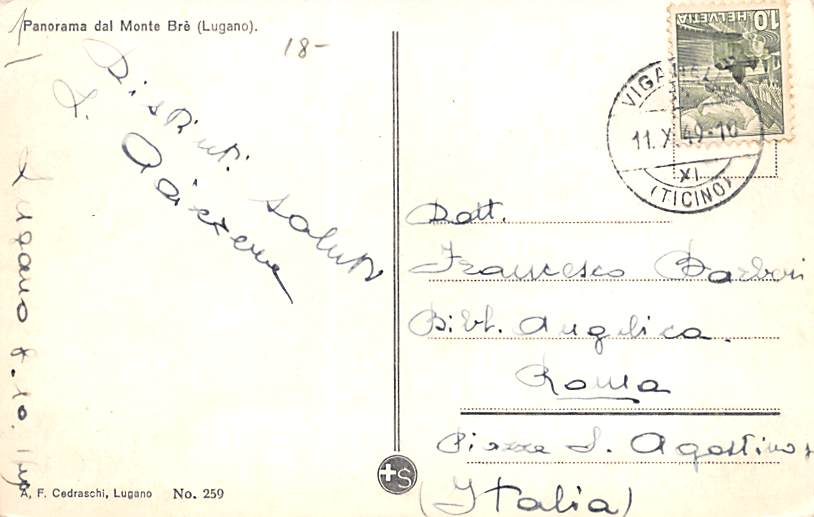 Panorama dal Monte Brè (Lugano).
18-
Distinti saluti
Lugano 8.10.
A. F. Cedraschi, Lugano No. 259
+S
HELVETIA
10
11. X. 49-10
XI
(TICINO)
Dott.
Francesco Barberi
Bibl. Angelica.
Roma
Piazza S. Agostino
(Italia)